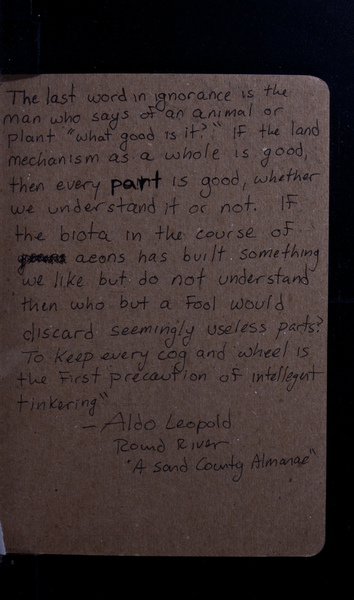 The last word in ignorance is the
man who says of an animal or
plant "what good is it?" If the land
mechanism as a whole is good,
then every part is good, whether
we understand it or not. If
the biota in the course of
aeons has built something
we like but do not understand
then who but a fool would
discard seemingly useless parts?
To keep every cog and wheel is
the first precaution of intellegent
tinkering"
- Aldo Leopold
Round River
"A Sand County Almanac"